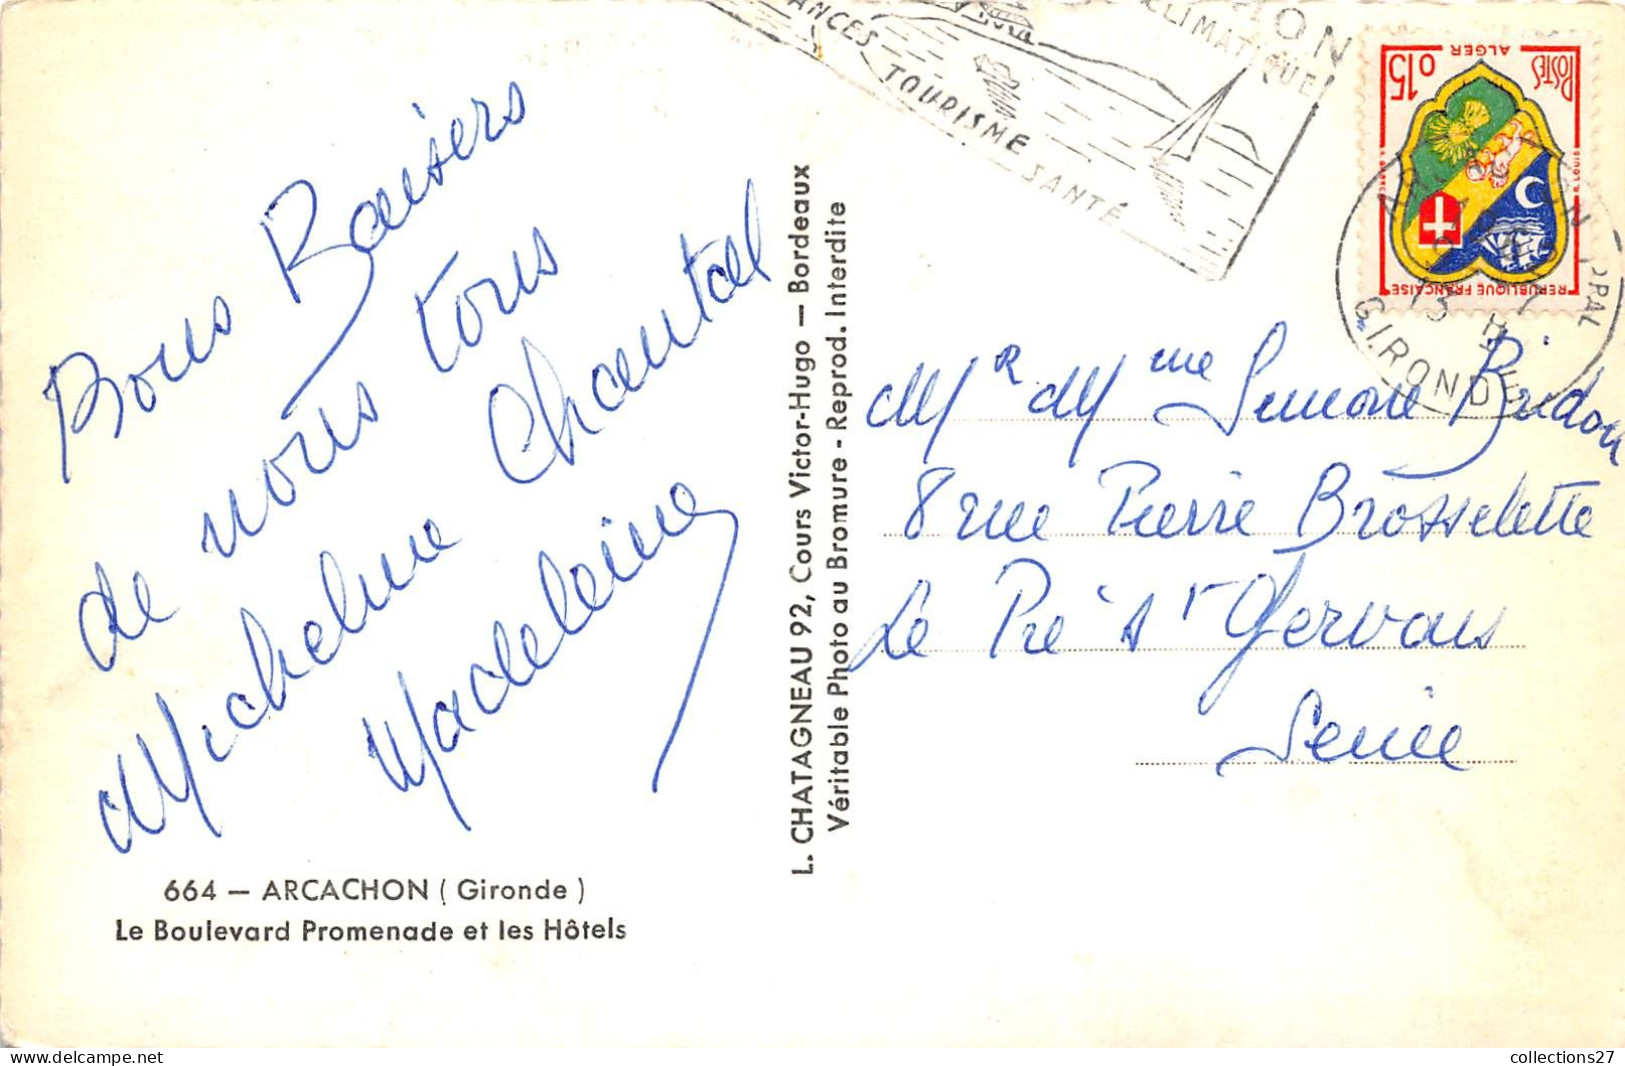 Bons Baisers
de nous tous
Micheline Chantal
Madeleine
664 — ARCACHON ( Gironde )
Le Boulevard Promenade et les Hôtels
L. CHATAGNEAU 92, Cours Victor-Hugo — Bordeaux
Véritable Photo au Bromure - Reprod. Interdite
ANCES TOURISME SANTÉ
CLIMATIQUE
POSTES 0,15
ALGER
REPUBLIQUE FRANÇAISE
GIRONDE
Mr Mme Simone Bridon
8 rue Pierre Brosselette
Le Pré St Gervais
Seine
collections27